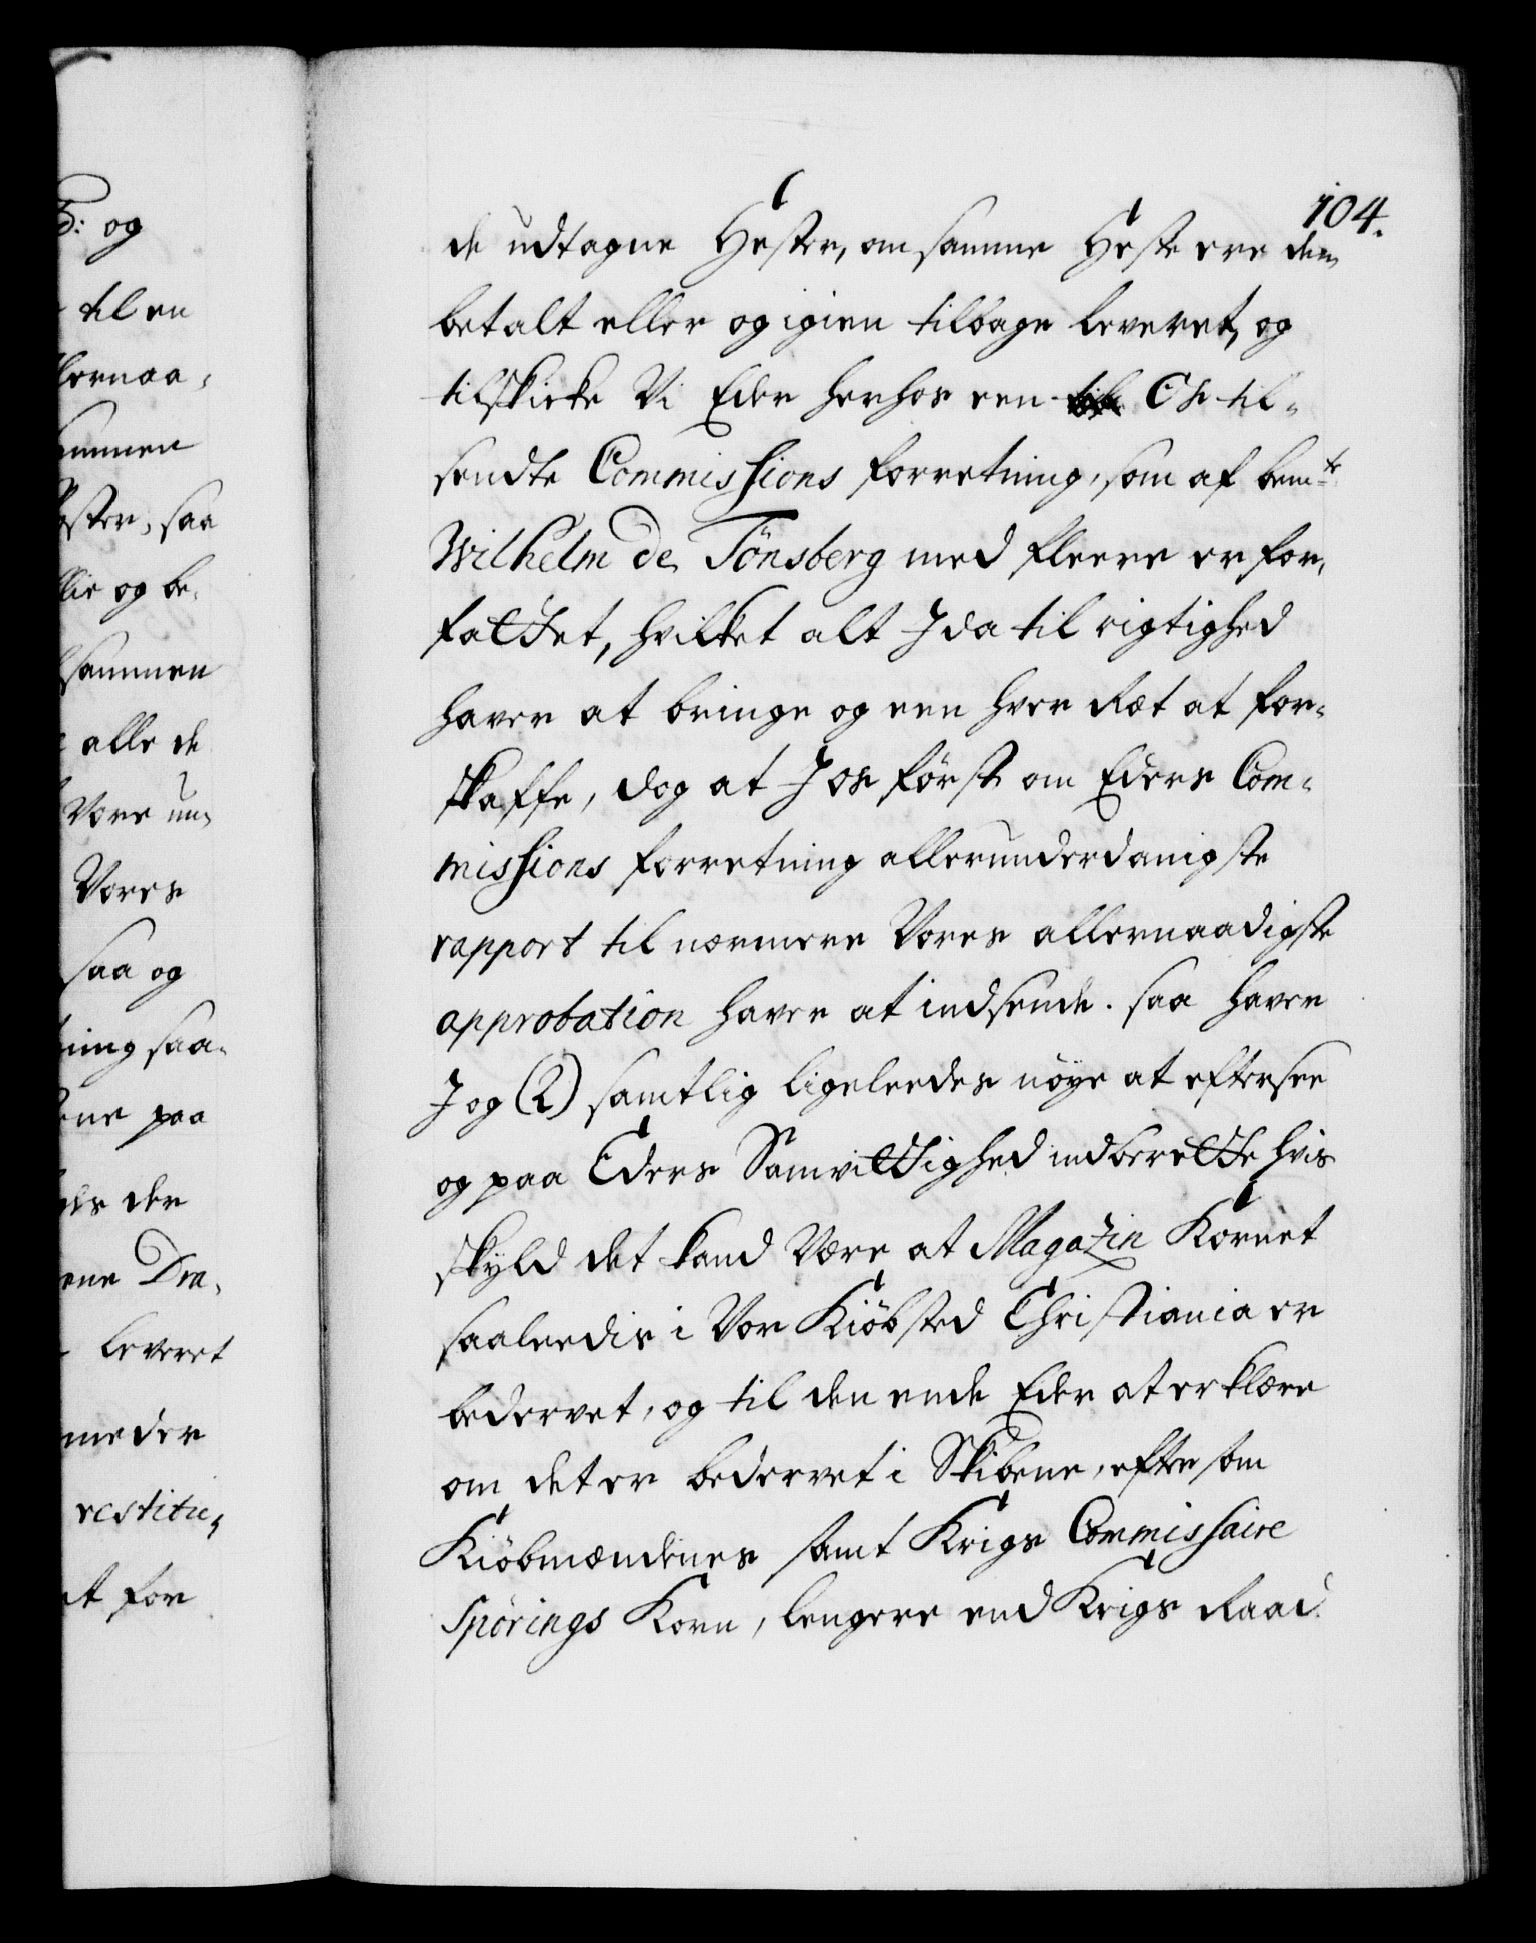 B: og
til en
lernaa-
ammen
ster, saa
lie og be-
sammen
alle de
Vore un-
Vores
saa og
ning saa-
ene paa
der
ene Dra-
leveret
meder
restitu-
at for
104.
de udtagne Hester, om samme Heste ere dem
betalt eller og igien tilbage leveret, og
tilskicke Vi Eder herhos een Os til-
sendte Commissions forretning, som af bemte
Wilhelm de Tönsberg med fleere er for-
fattet, hvilket alt I da til rigtighed
haver at bringe og een hver Ræt at for-
skaffe, dog at I Os först om Eders Com-
missions forretning allerunderdanigste
rapport til nærmere Vores allernaadigste
approbation haver at indsende. saa haver
I og (2) samtlig ligeleedes nöye at eftersee
og paa Eders Samvittighed indberette hvis
skyld det kand være at Magazin Kornet
saaleedis i Vor Kiöbsted Christiania er
bedervet, og til den ende Eder at erklære
om det er bedervet i Skibene, efter som
Kiöbmændenes samt Krigs Commissaire
Spörings Korn, lengere end Krigs Raad